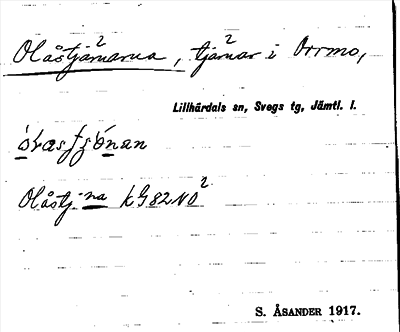 Olåstjärnarna, 2 tjärnar i Orrmo,
Lillhärdals sn, Svegs tg, Jämtl. l.
Olåstj-na kG82NO2
S. ÅSANDER 1917.